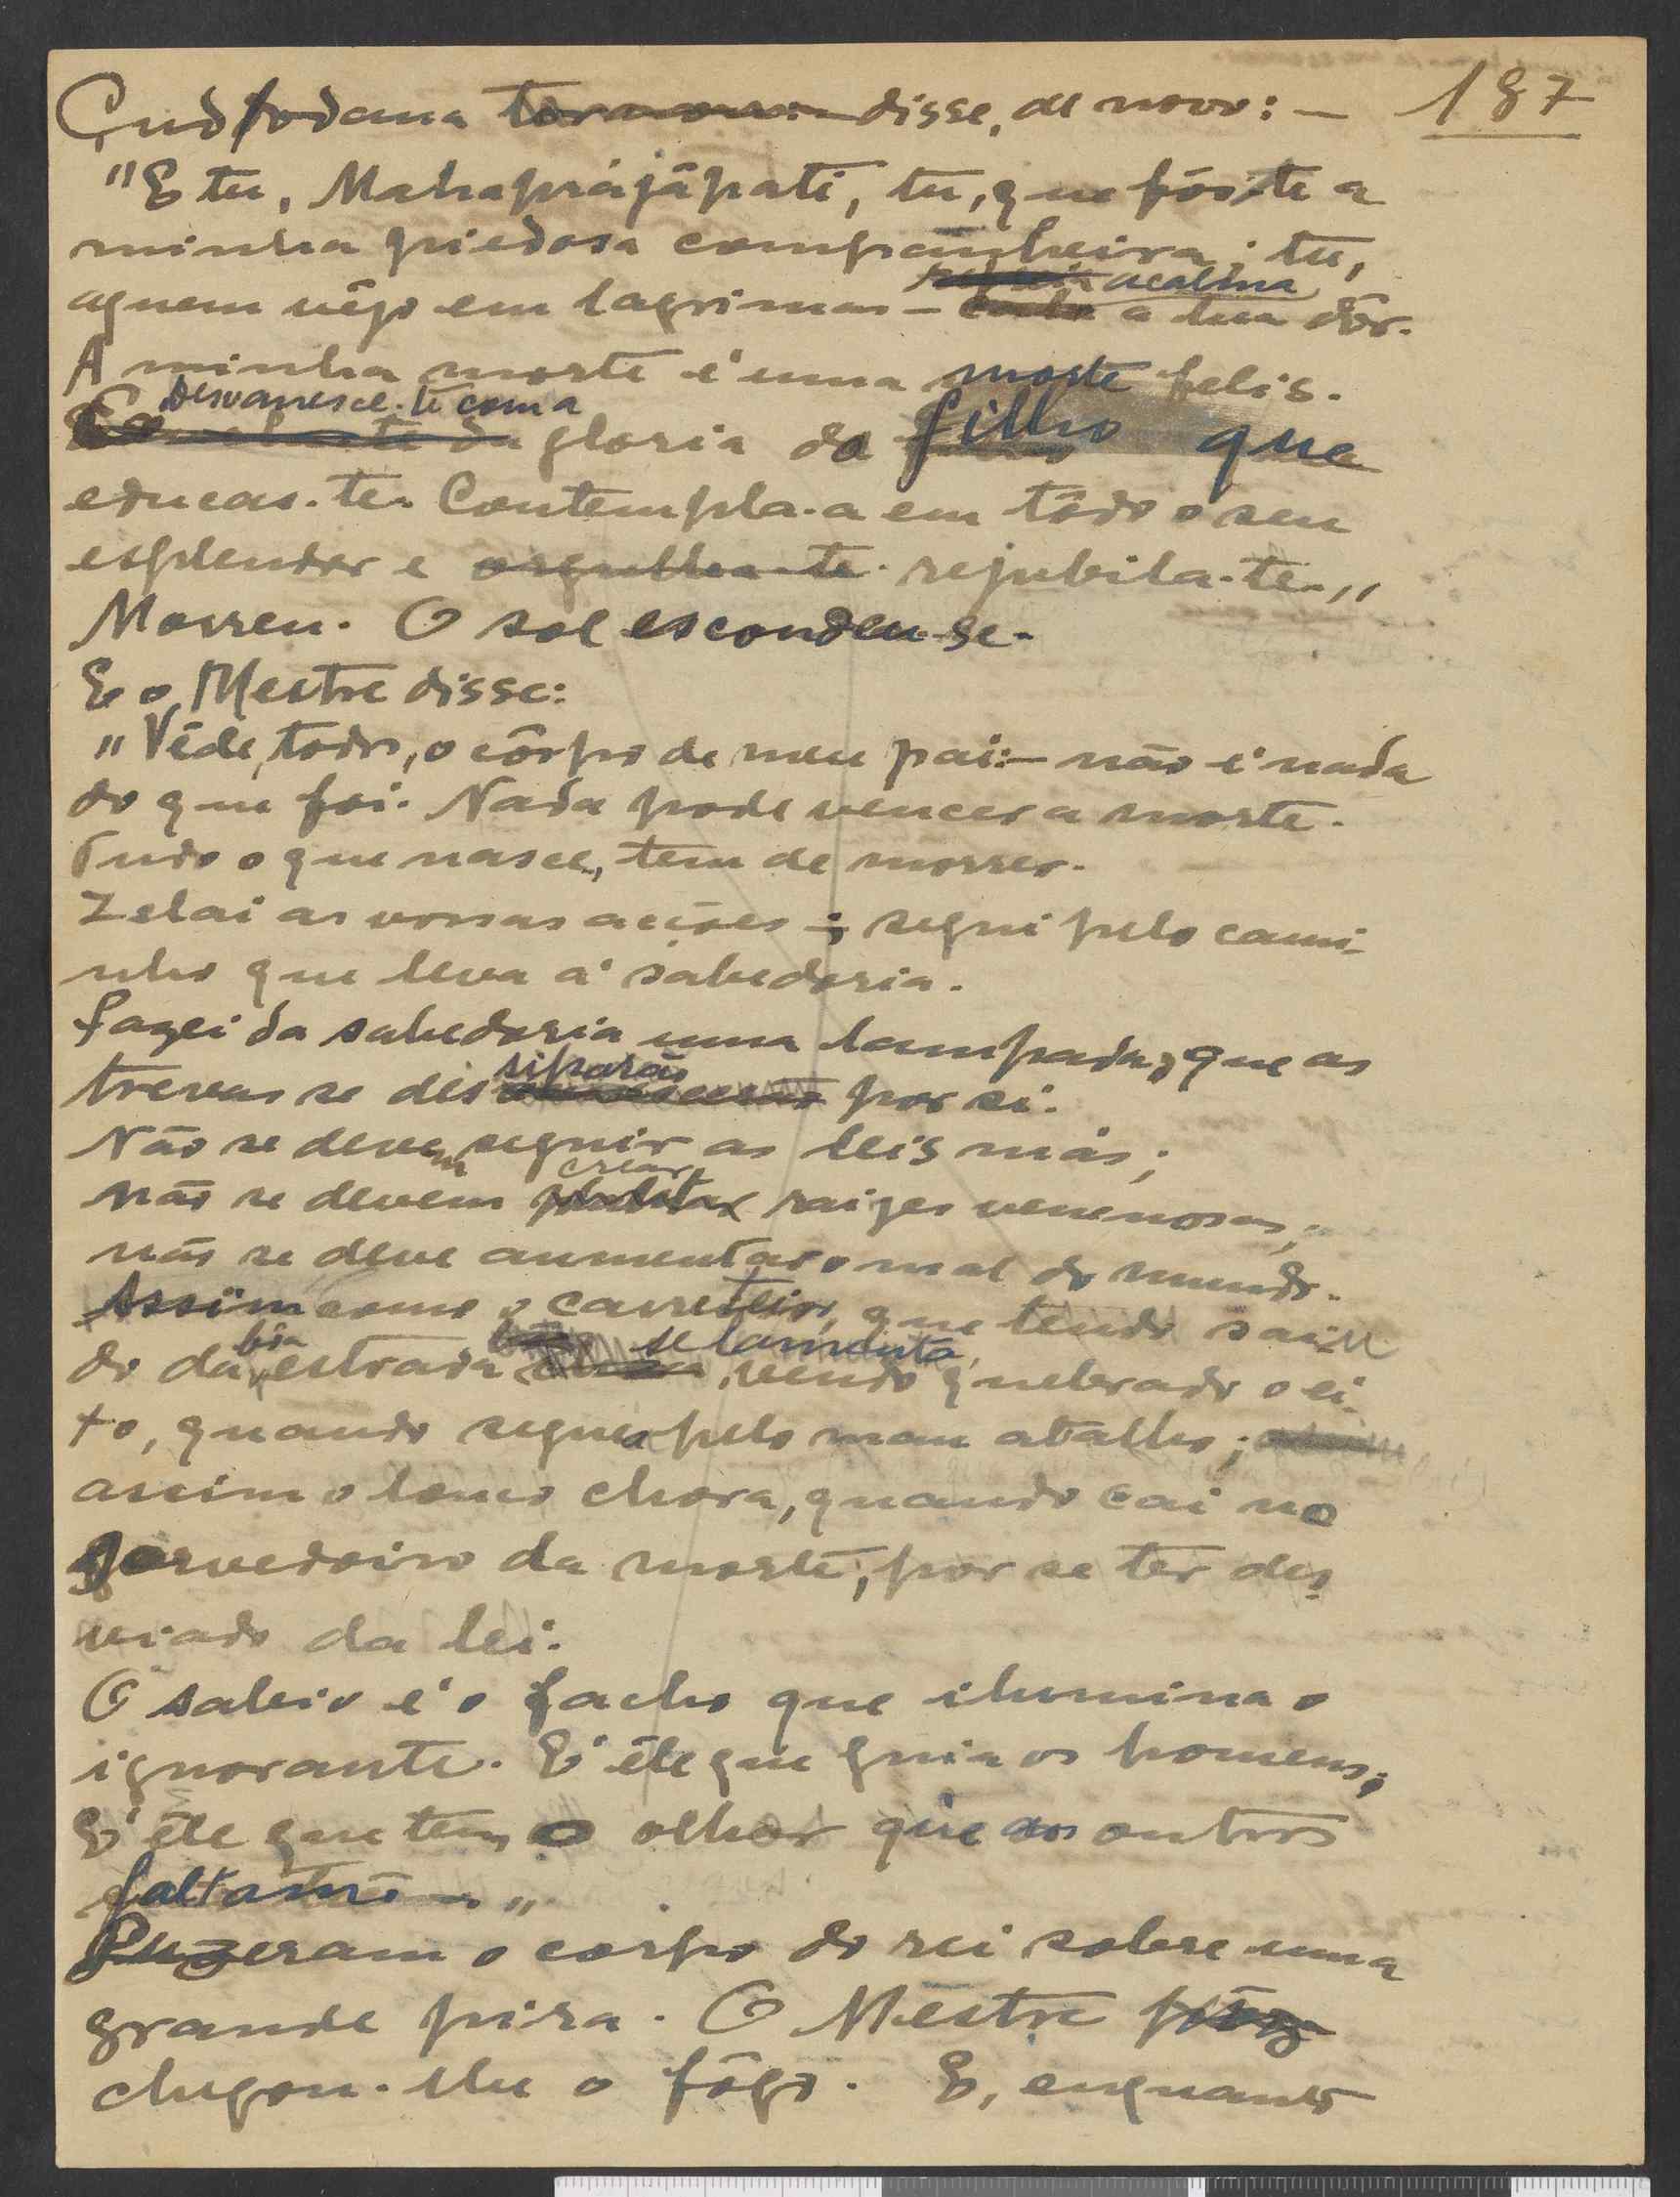 187
Çudfodana disse, de novo: —
"E tu, Mahaprájâpati, tu, que fôste a
minha piedosa companheira; tu,
aquem vêjo em lagrimas — acalma a tua dôr.
A minha morte é uma morte felis.
Desvanesce-te com a gloria do filho que
educas-te. Contempla-a em tôdo o seu
esplendor e orgulha-te rejubila-te."
Morreu. O sol escondeu-se.
E o Mestre disse:
"Vêde, todos, o côrpo de meu pai: — não é nada
do que foi. Nada pode vencer a morte.
Tudo o que nasce, tem de morrer.
Zelai as vossas acções; segui pelo cami-
nho que leva á sabedoria.
Fazei da sabedoria uma lampada, que as
trevas se dessiparão por si.
Não se devem seguir as leis más;
não se devem crear raizes venenosas;
não se deve aumentar o mal do mundo.
Assim como o carreteiro, que tendo sai
do da bôa estrada se lamenta, vendo quebrado o ei-
xo, quando segue pelo mau atalho;
assim o louco chora, quando cai no
sorvedoiro da morte, por se ter des
viado da lei.
O sabio é o facho que ilumina o
ignorante. E' êle que guia os homens;
E' êle que tem o olhar que aos outros
falta."
Puzeram o corpo do rei sobre uma
grande pira. O Mestre
chegou-lhe o fôgo. E, enquanto